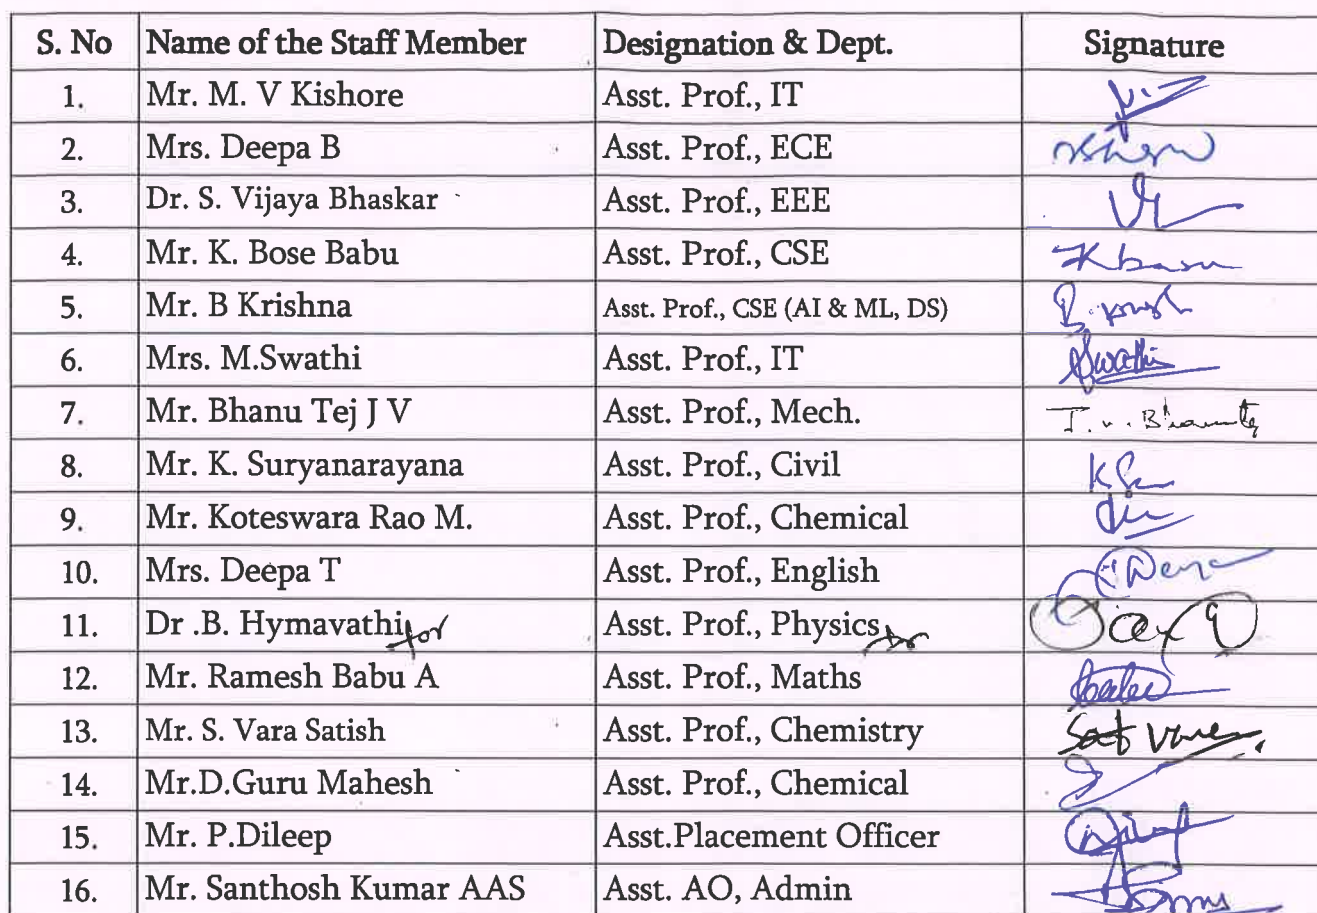 S. No Name of the Staff Member Designation & Dept. Signature
1. Mr. M. V Kishore Asst. Prof., IT
2. Mrs. Deepa B Asst. Prof., ECE
3. Dr. S. Vijaya Bhaskar Asst. Prof., EEE
4. Mr. K. Bose Babu Asst. Prof., CSE
5. Mr. B Krishna Asst. Prof., CSE (AI & ML, DS)
6. Mrs. M.Swathi Asst. Prof., IT Swathi
7. Mr. Bhanu Tej J V Asst. Prof., Mech.
8. Mr. K. Suryanarayana Asst. Prof., Civil
9. Mr. Koteswara Rao M. Asst. Prof., Chemical
10. Mrs. Deepa T Asst. Prof., English
11. Dr .B. Hymavathi Asst. Prof., Physics
12. Mr. Ramesh Babu A Asst. Prof., Maths
13. Mr. S. Vara Satish Asst. Prof., Chemistry
14. Mr.D.Guru Mahesh Asst. Prof., Chemical
15. Mr. P.Dileep Asst.Placement Officer
16. Mr. Santhosh Kumar AAS Asst. AO, Admin